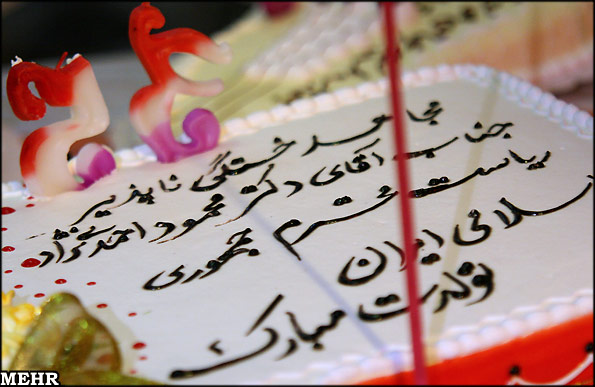 مجاهد خستگی ناپذیر
جناب آقای دکتر محمود احمدی نژاد
ریاست محترم جمهوری
اسلامی ایران
تولدت مبارک
MEHR